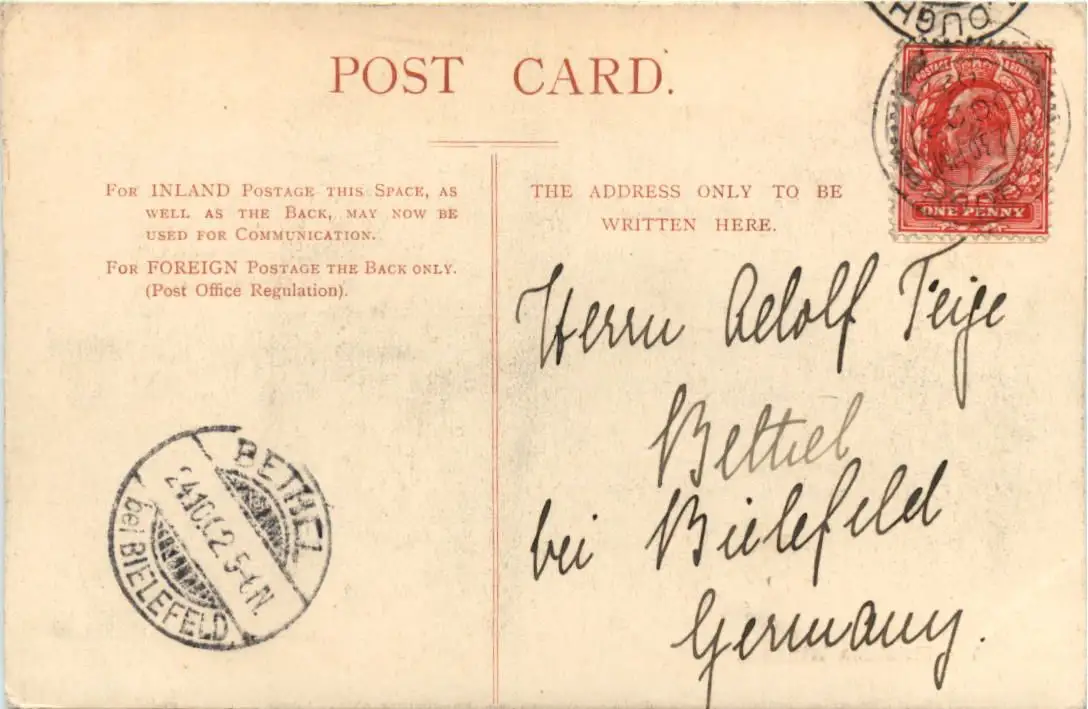 POST CARD.
FOR INLAND POSTAGE THIS SPACE, AS
WELL AS THE BACK, MAY NOW BE
USED FOR COMMUNICATION.
FOR FOREIGN POSTAGE THE BACK ONLY.
(Post Office Regulation).
THE ADDRESS ONLY TO BE
WRITTEN HERE.
POSTAGE
ONE PENNY
Herrn Adolf Teige
Bethel
bei Bielefeld
Germany.
BETHEL
bei BIELEFELD.